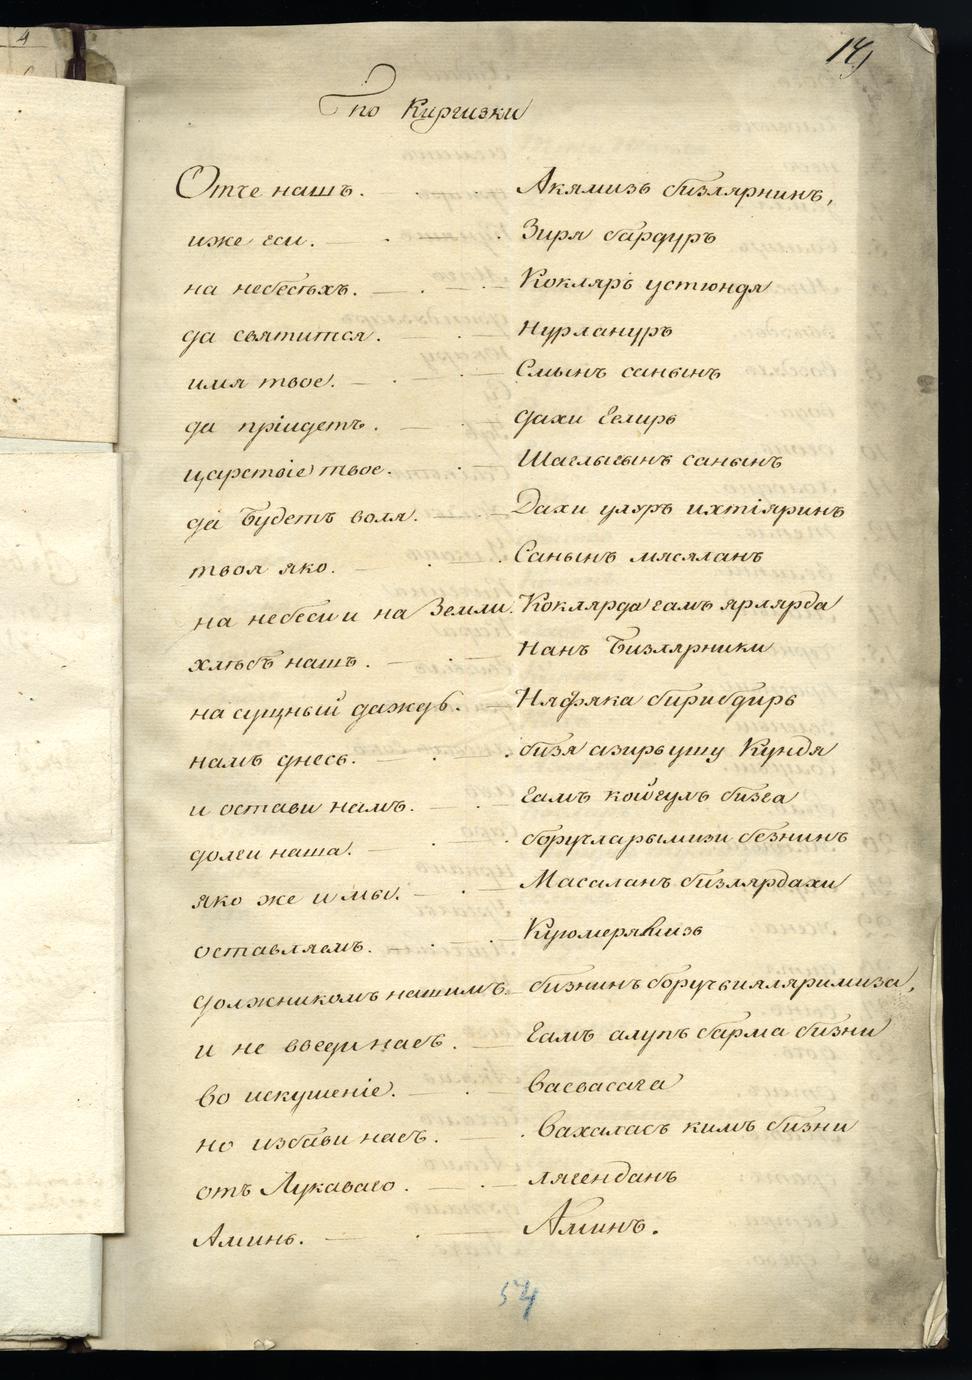 14
По Киргизки
Отче нашъ. Акямизъ бизлярнинъ,
иже еси. Зиря бардуръ
на небесѣхъ. Кокляръ устюндя
да святится. Нурлануръ
имя твое. Смынъ санынъ
да прiидетъ. дахи Гелиръ
царствiе твое. Шаглыгынъ санынъ
да будетъ воля. Дахи улуръ ихтiяринъ
твоя яко. Санынъ мясяланъ
на небеси и на Земли. Коклярда гамъ ярлярда
хлѣбъ нашъ. Нанъ Бизлярники
насущный даждь. Няфяка бирибдиръ
намъ днесь. бизя азирь ушу Кундя
и остави намъ. Гамъ койгулъ бизга
долги наша. боручларымизи безнинъ
яко же и мы. Масаланъ бизлярдахи
оставляемъ.
должникомъ нашимъ. бизнинъ
и не введи насъ. Гамъ алупъ барма бизни
во искушенiе. васвасага
но избави насъ. Вахаласъ килъ бизни
отъ Лукаваго. лягендань
Аминь. Аминъ.
54